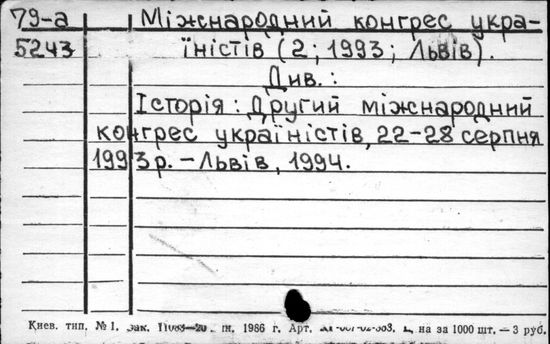 79-а Міжнародний конгрес укра-
5243 їністів (2; 1993; Львів).
Див.:
Історія: Другий міжнародний
конгрес україністів, 22-28 серпня
1993р. – Львів, 1994.
Киев. тип. № 1. Зак. 1986 г. Арт. на за 1000 шт. — 3 руб.